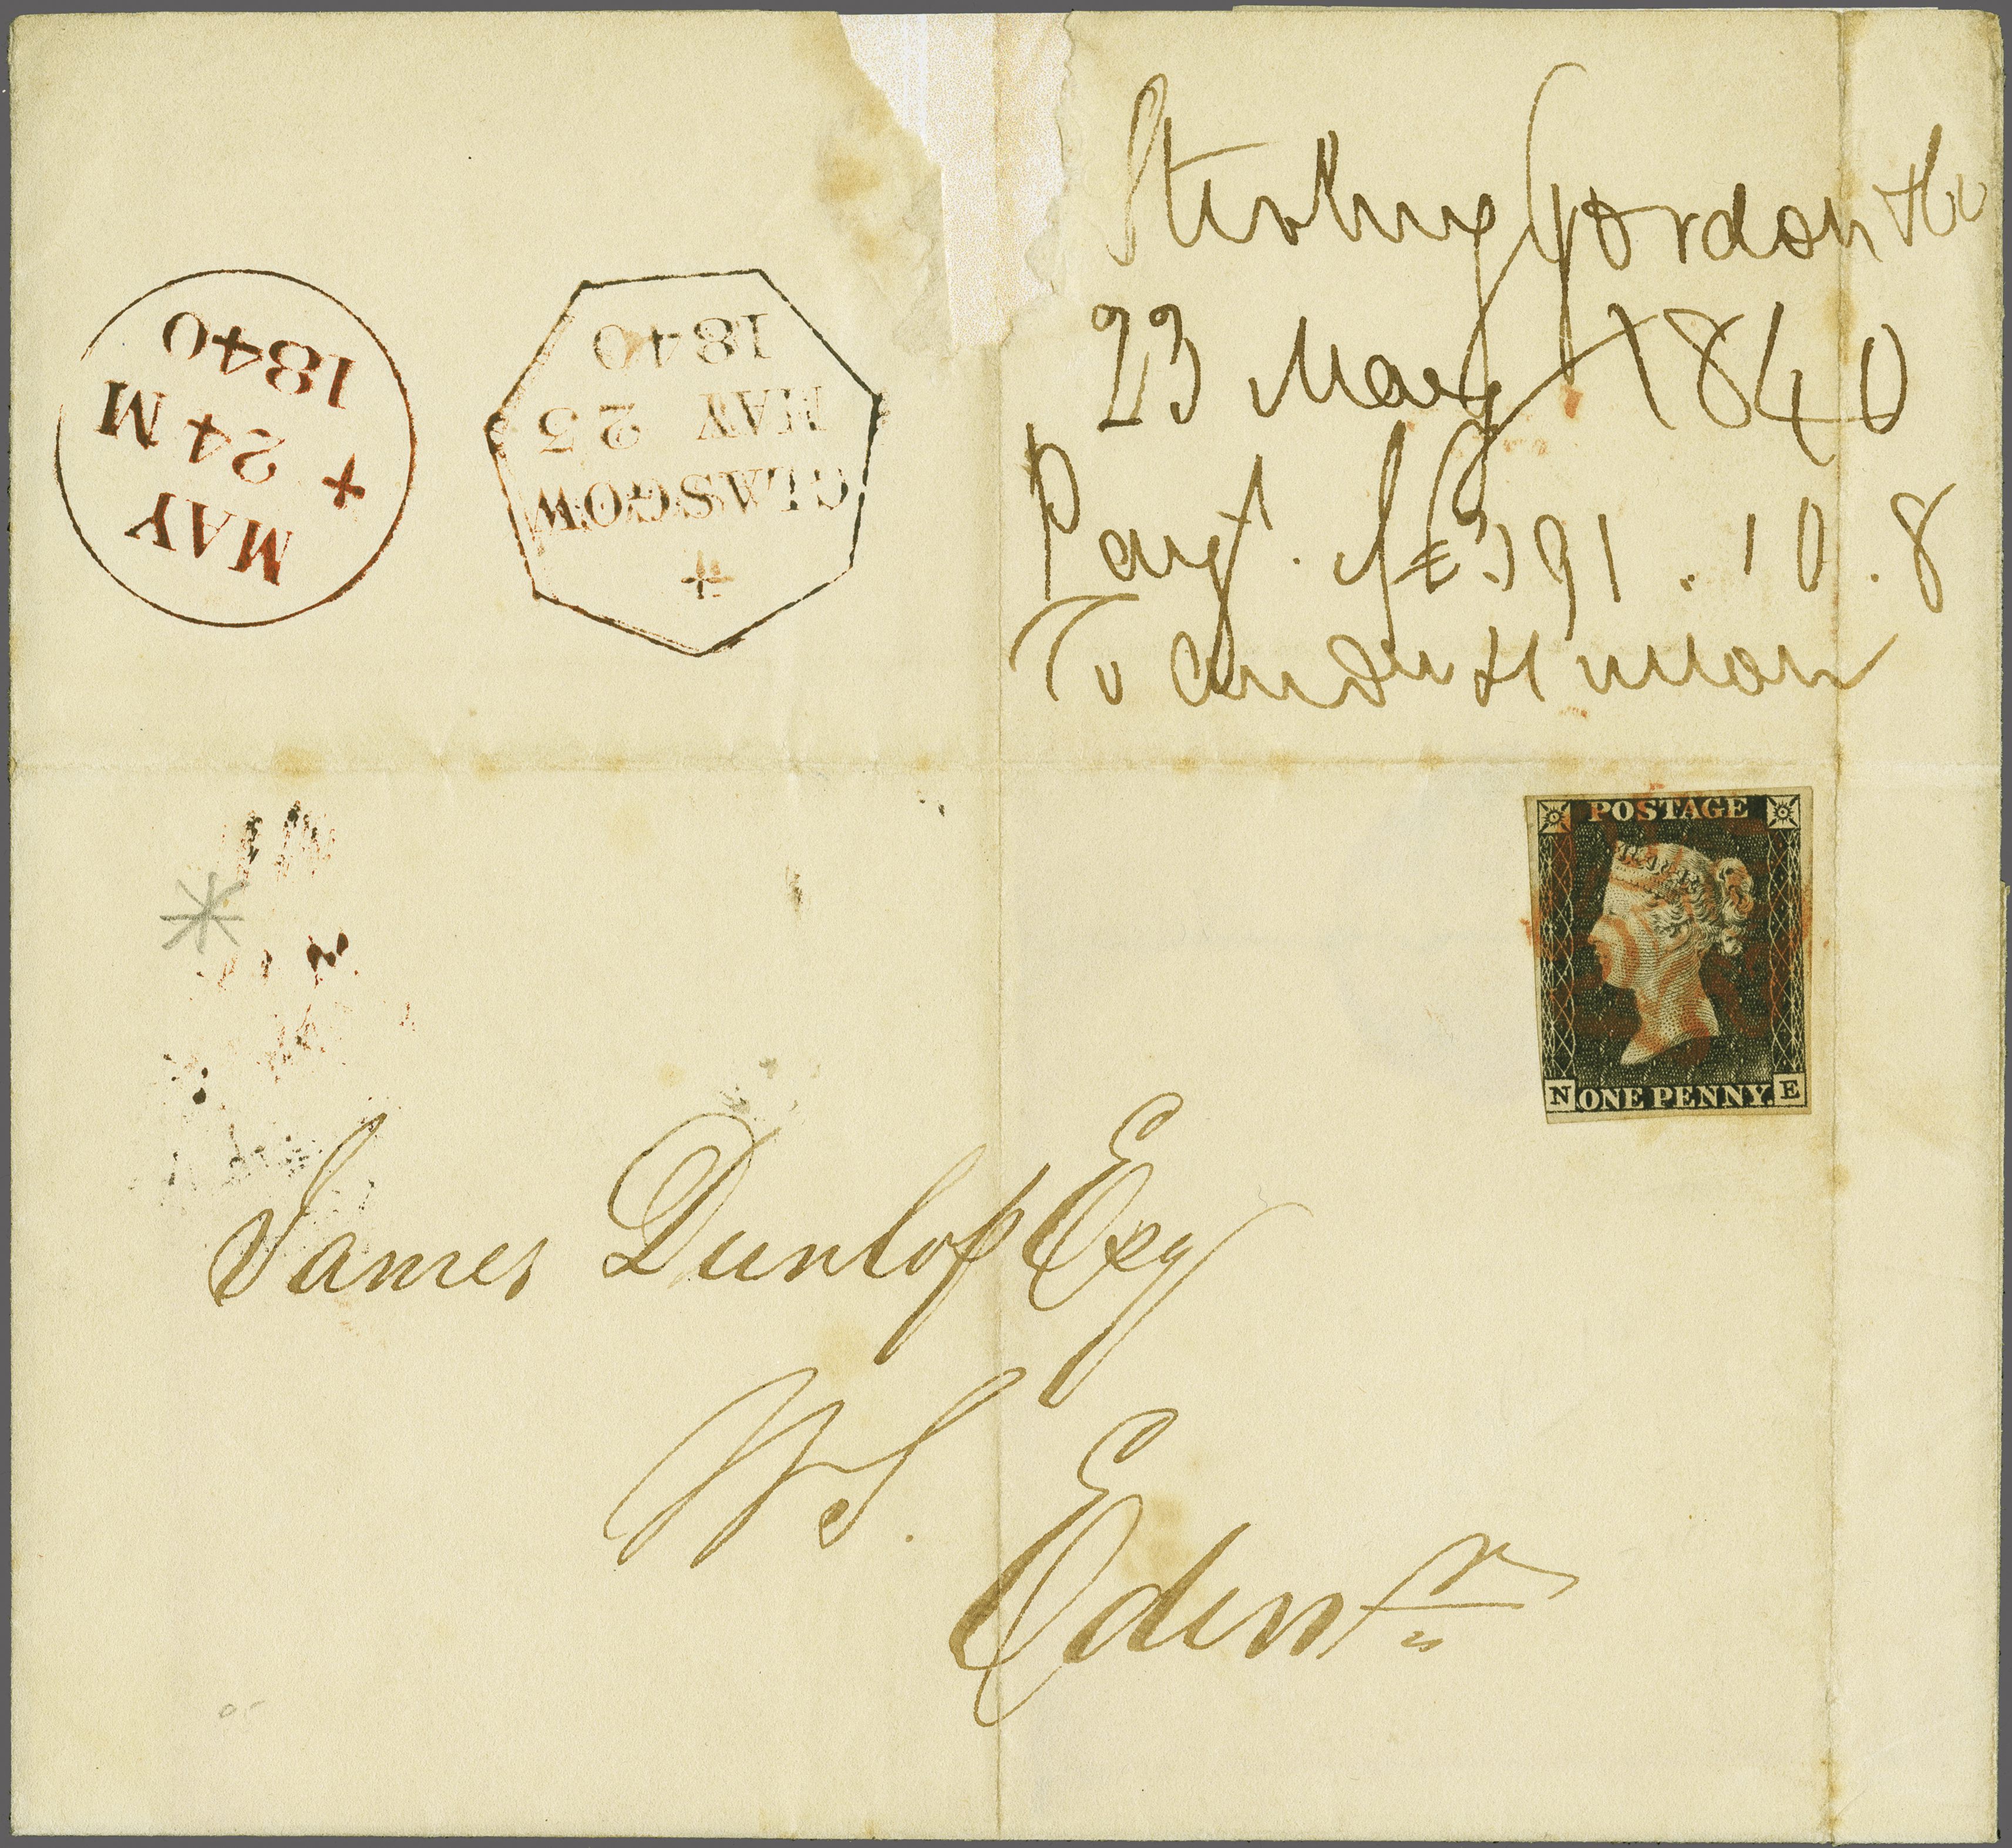 Stirling Gordon &Co
23 May 1840
Payt. of £391.10.8
To Union
MAY
24 M
1840
GLASGOW
MAY 23
1840
POSTAGE
N ONE PENNY. E
James Dunlop Esq
W.S.
Edinr